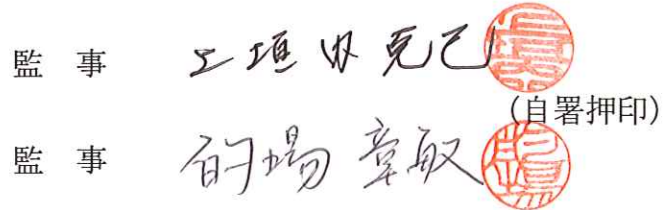 監 事 上垣内克己
(自署押印)
監 事 的場章敏